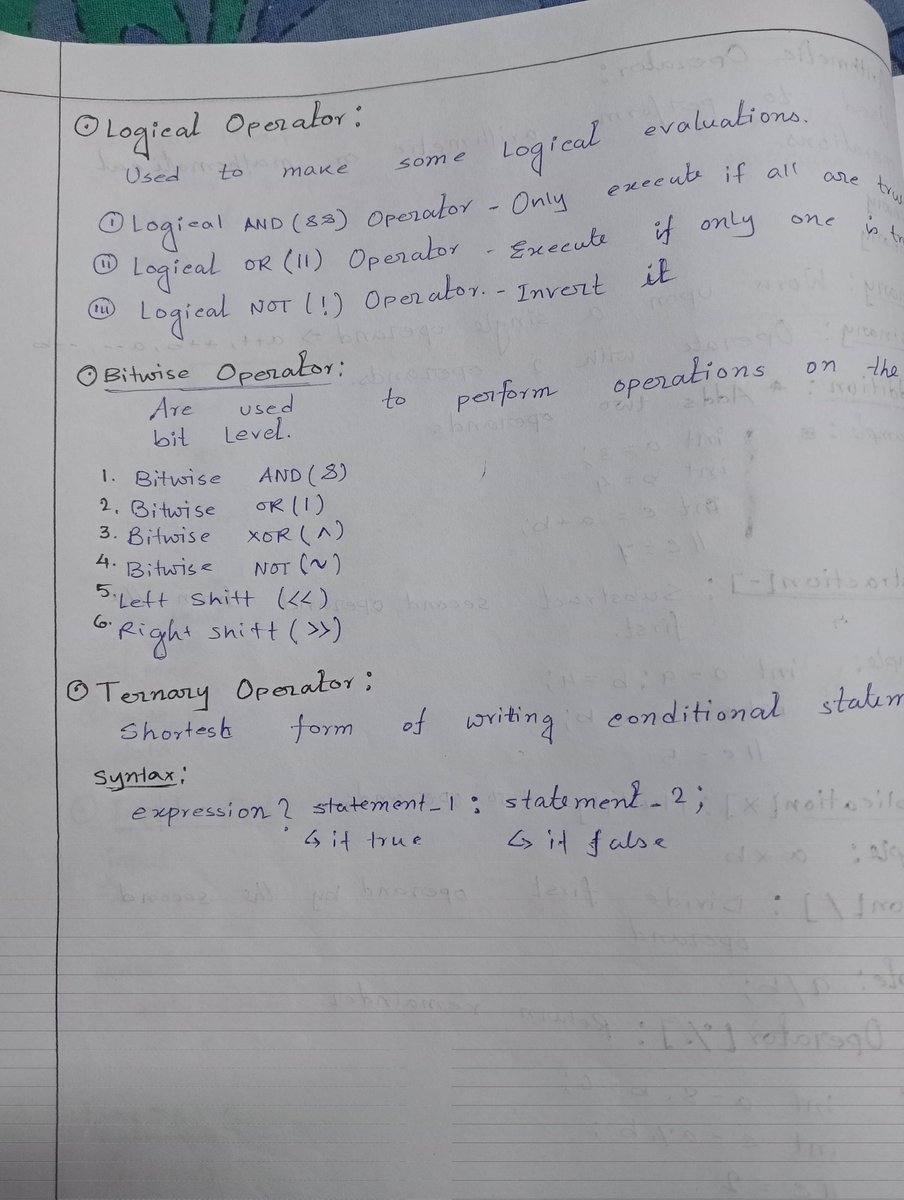 ⊙ Logical Operator:
Used to make some Logical evaluations.
(i) Logical AND (&&) Operator - Only execute if all are true
(ii) Logical OR (||) Operator - Execute if only one is tr
(iii) Logical NOT (!) Operator. - Invert it
⊙ Bitwise Operator:
Are used to perform operations on the
bit Level.
1. Bitwise AND (&)
2. Bitwise OR (|)
3. Bitwise XOR (^)
4. Bitwise NOT (~)
5. Left Shift (<<)
6. Right shift (>>)
⊙ Ternary Operator:
Shortest form of writing conditional statem
Syntax:
expression? statement_1 : statement_2;
↳ if true ↳ if false